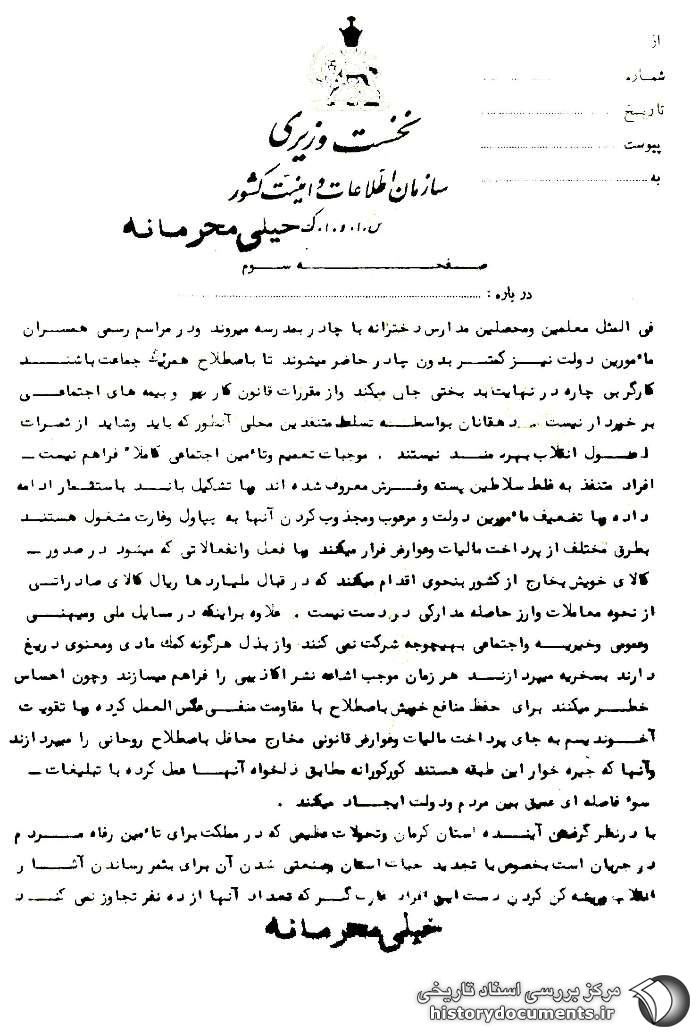 از
شماره
تاریخ
پیوست
به
نخست وزیری
سازمان اطلاعات و امنیت کشور
س.ا.و.ا.ک
خیلی محرمانه
صفحه سوم
درباره :
فی المثل معلمین ومحصلین مدارس دخترانه با چادر بمدرسه میروند ودر مراسم رسمی همسران
مأمورین دولت نیز کمتر بدون چادر حاضر میشوند تا باصطلاح همرنگ جماعت باشند
کارگر بی چاره در نهایت بد بختی جان میکند واز مقررات قانون کار و بیمه های اجتماعی
برخوردار نیست دهقانان بواسطه تسلط متنفذین محلی آنطور که باید وشاید از ثمرات
اصول انقلاب بهره مند نیستند . موجبات تعمیم وتأمین اجتماعی کاملا فراهم نیست ــ
افراد متنفذ به غلط سلاطین پسته وفرش معروف شده اند با تشکیل باند باستثمار ادامه
داده با تضعیف مأمورین دولت و مرعوب ومجذوب کردن آنها به چپاول وغارت مشغول هستند
بطرق مختلف از پرداخت مالیات وعوارض فرار میکنند با فعل وانفعالاتی که مینمود در صدور ــ
کالای خویش بخارج از کشور بنحوی اقدام میکنند که در قبال ملیاردها ریال کالای صادراتی
از نحوه معاملات وارز حاصله مدارکی در دست نیست . علاوه براینکه در مسایل ملی ومیهنی
وعمومی وخیریه واجتماعی بهیچوجه شرکت نمی کنند واز بذل هرگونه کمک مادی ومعنوی دریغ
دارند بسخریه میپردازند هر زمان موجب اشاعه نشر اکاذیبی را فراهم میسازند وچون احساس
خطر میکنند برای حفظ منافع خویش باصطلاح با مقاومت منفی عکس العمل کرده با تقویت
آخوندیسم به جای پرداخت مالیات وعوارض قانونی مخارج محافل باصطلاح روحانی را میپردازند
وآنها که جیره خوار این طبقه هستند کورکورانه مطابق دلخواه آنها عمل کرده با تبلیغات ــ
سوء فاصله ای عمیق بین مردم ودولت ایجاد میکنند .
با درنظر گرفتن آینده استان کرمان وتحولات عظیمی که در مملکت برای تأمین رفاه مردم
در جریان است بخصوص با تجدید حیات استان وصنعتی شدن آن برای بثمر رساندن آثار
انقلاب وریشه کن کردن دست این افراد غارتگر که تعداد آنها از ده نفر تجاوز نمی کند
خیلی محرمانه
مرکز بررسی اسناد تاریخی
historydocuments.ir